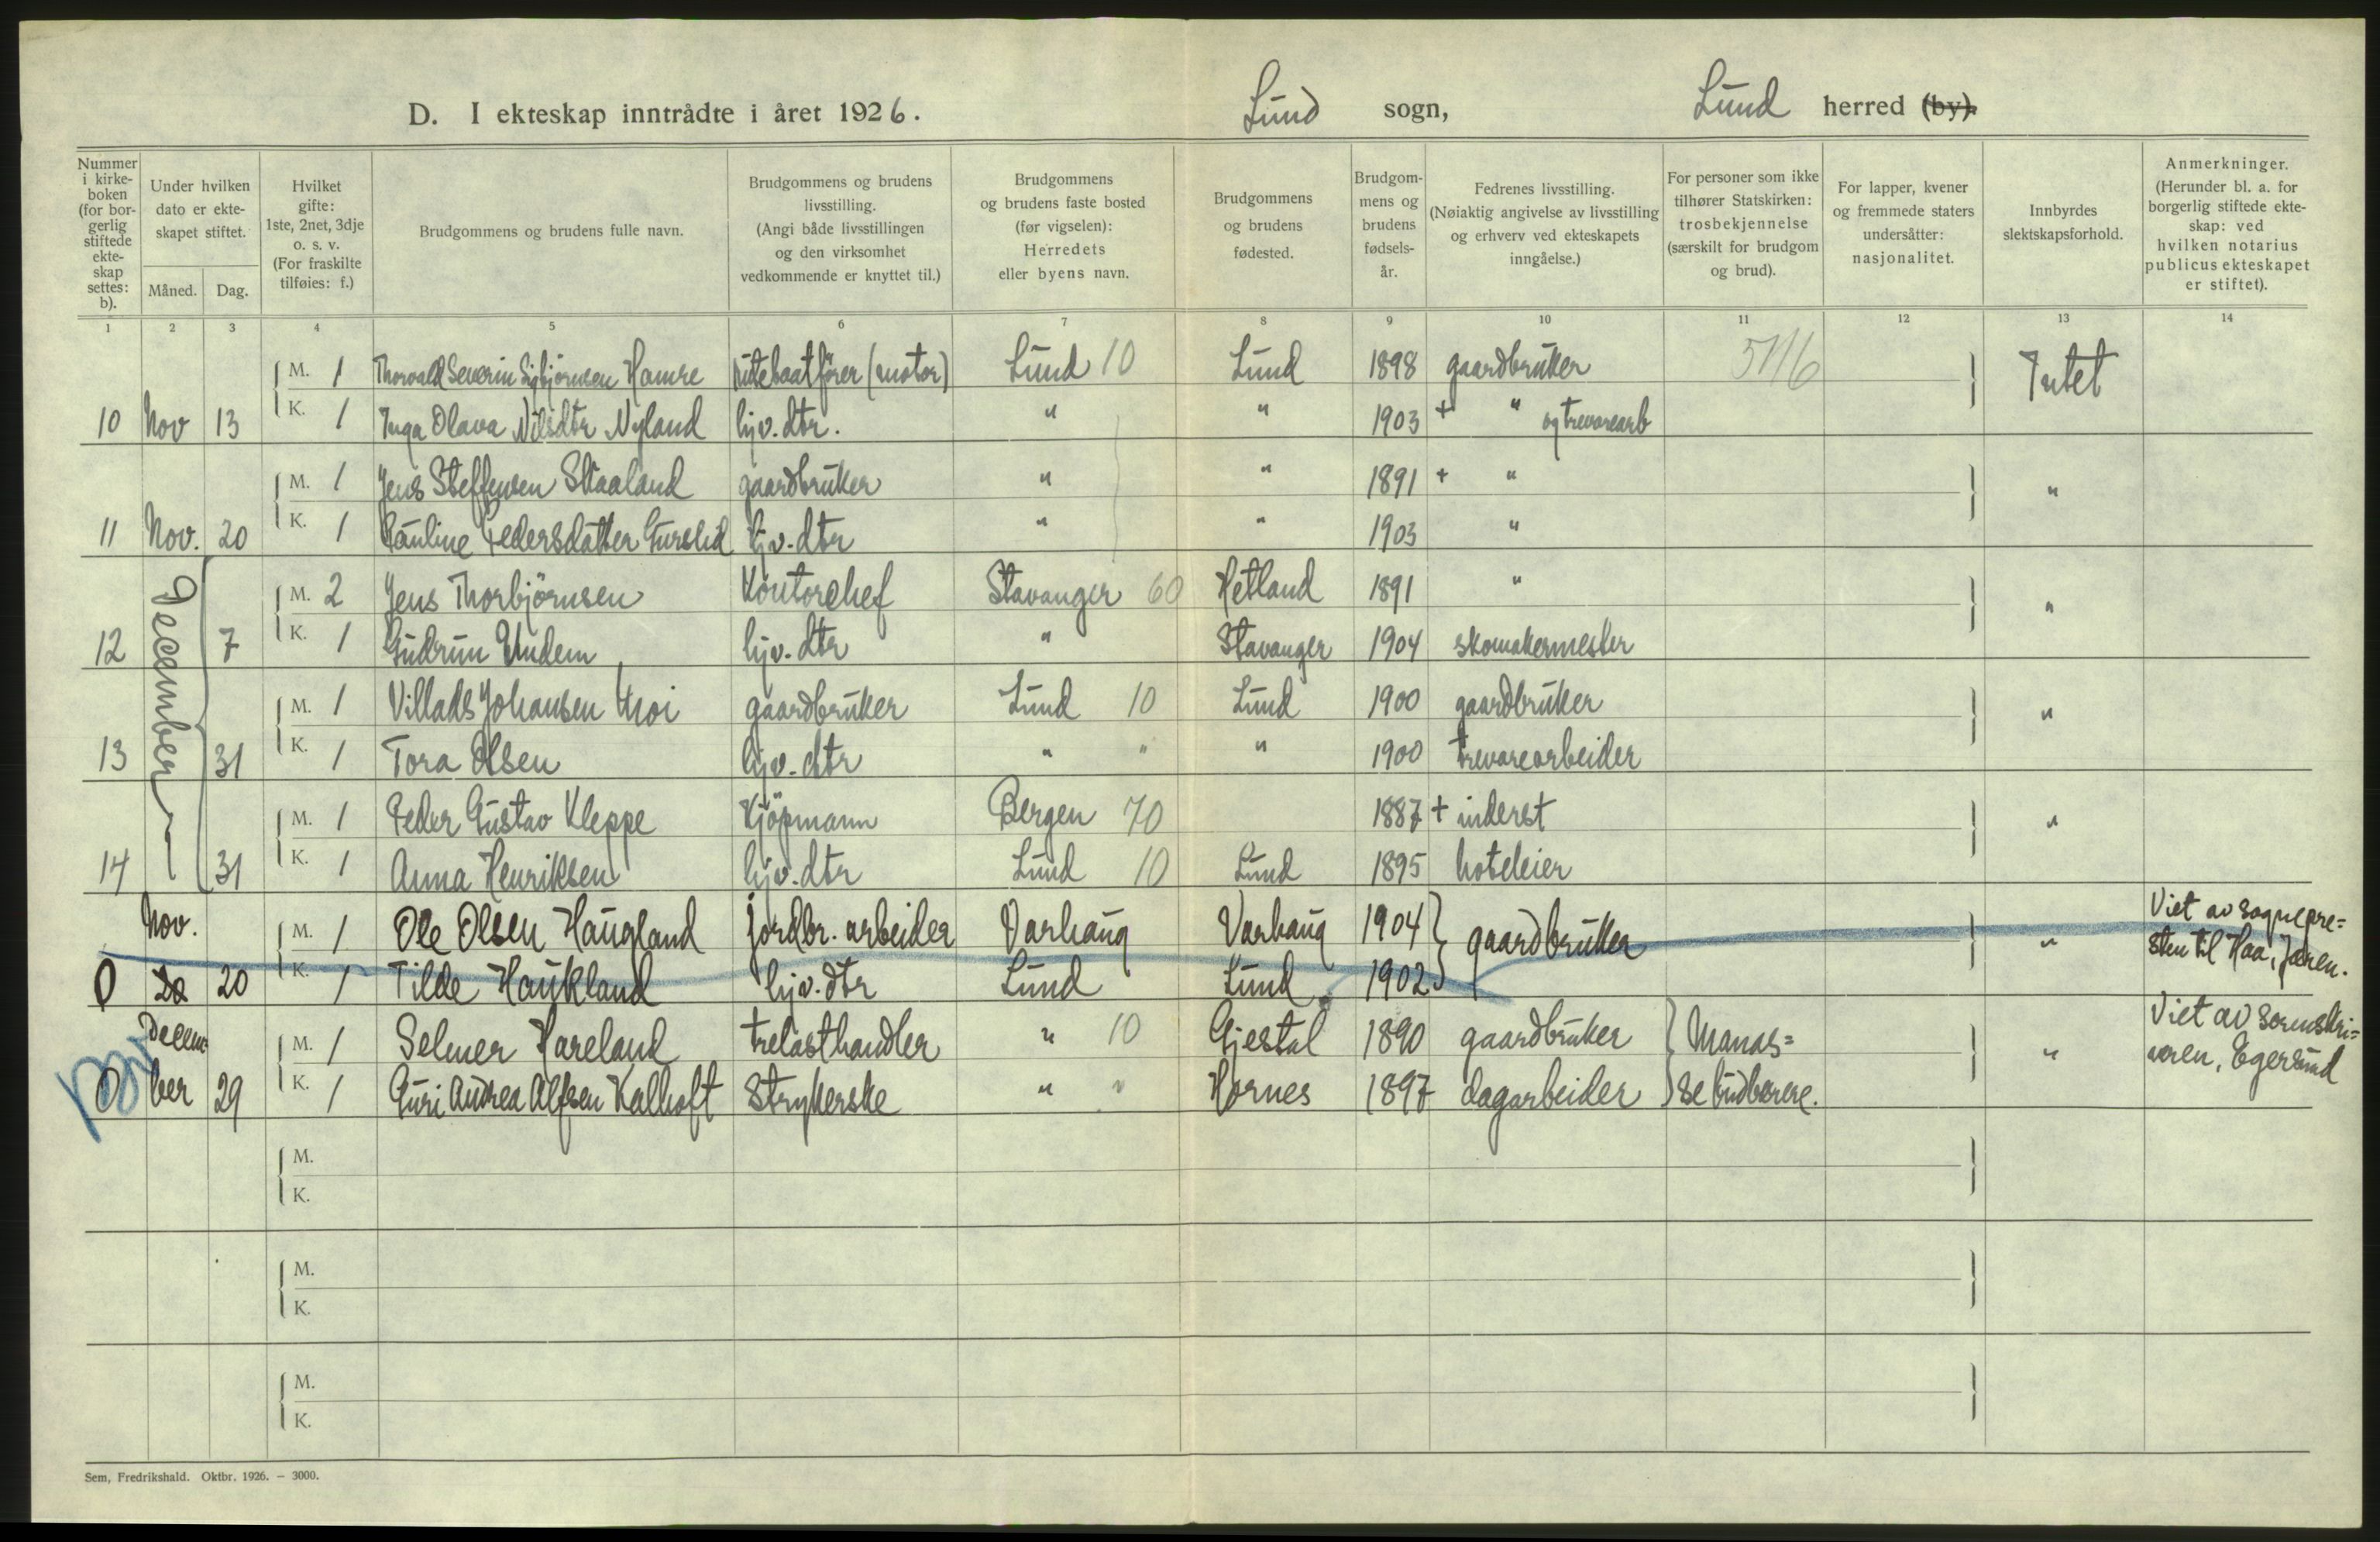 D. I ekteskap inntrådte i året 1926. Lund sogn, Lund herred (by).
Nummer i kirke-boken (for bor-gerlig stiftede ekte-skap settes: b).
Under hvilken dato er ekte-skapet stiftet.
Måned. Dag.
Hvilket gifte: 1ste, 2net, 3dje o. s. v. (For fraskilte tilføies: f.)
Brudgommens og brudens fulle navn.
Brudgommens og brudens livsstilling. (Angi både livsstillingen og den virksomhet vedkommende er knyttet til.)
Brudgommens og brudens faste bosted (før vigselen): Herredets eller byens navn.
Brudgommens og brudens fødested.
Brudgom-mens og brudens fødsels-år.
Fedrenes livsstilling. (Nøiaktig angivelse av livsstilling og erhverv ved ekteskapets inngåelse.)
For personer som ikke tilhører Statskirken: trosbekjennelse (særskilt for brudgom og brud).
For lapper, kvener og fremmede staters undersåtter: nasjonalitet.
Innbyrdes slektskapsforhold.
Anmerkninger. (Herunder bl. a. for borgerlig stiftede ekte-skap: ved hvilken notarius publicus ekteskapet er stiftet).
1 2 3 4 5 6 7 8 9 10 11 12 13 14
M. 1 Thorvald Severin Sigbjörnsen Hamre rutebaatförer (motor) Lund 10 Lund 1898 gaardbruker 5116 Intet
10 Nov 13 K. 1 Inga Olava Nilsdtr Nyland hjv. dtr. " " 1903 + " og trevarearb
M. 1 Jens Steffensen Skaaland gaardbruker " " 1891 + " "
11 Nov. 20 K. 1 Pauline Pedersdatter Gurslid hjv. dtr " " 1903 "
December
M. 2 Jens Thorbjörnsen Kontorchef Stavanger 60 Hetland 1891 " "
12 7 K. 1 Gudrun Undem hjv. dtr " Stavanger 1904 skomakermester
M. 1 Villads Johansen Moi gaardbruker Lund 10 Lund 1900 gaardbruker "
13 31 K. 1 Tora Olsen hjv. dtr " " " 1900 trevarearbeider
M. 1 Peder Gustav Kleppe Kjöpmann Bergen 70 1887 + inderst "
14 31 K. 1 Anna Henriksen hjv. dtr Lund 10 Lund 1895 hoteleier
Nov. M. 1 Ole Olsen Haugland jordbr. arbeider Varhaug Varhaug 1904 gaardbruker " Viet av sognepre=
0 20 K. 1 Tilde Haukland hjv. dtr Lund Lund 1902 sten til Haa, Jæren.
Decem M. 1 Selmer Hareland trelasthandler " 10 Gjestal 1890 gaardbruker Manas= " Viet av sorenskri=
0 ber 29 K. 1 Guri Andrea Alfsen Kalhoft Strykerske " " Hornes 1897 dagarbeider se budbærere. veren, Egersund
M.
K.
M.
K.
M.
K.
Sem, Fredrikshald. Oktbr. 1926. — 3000.